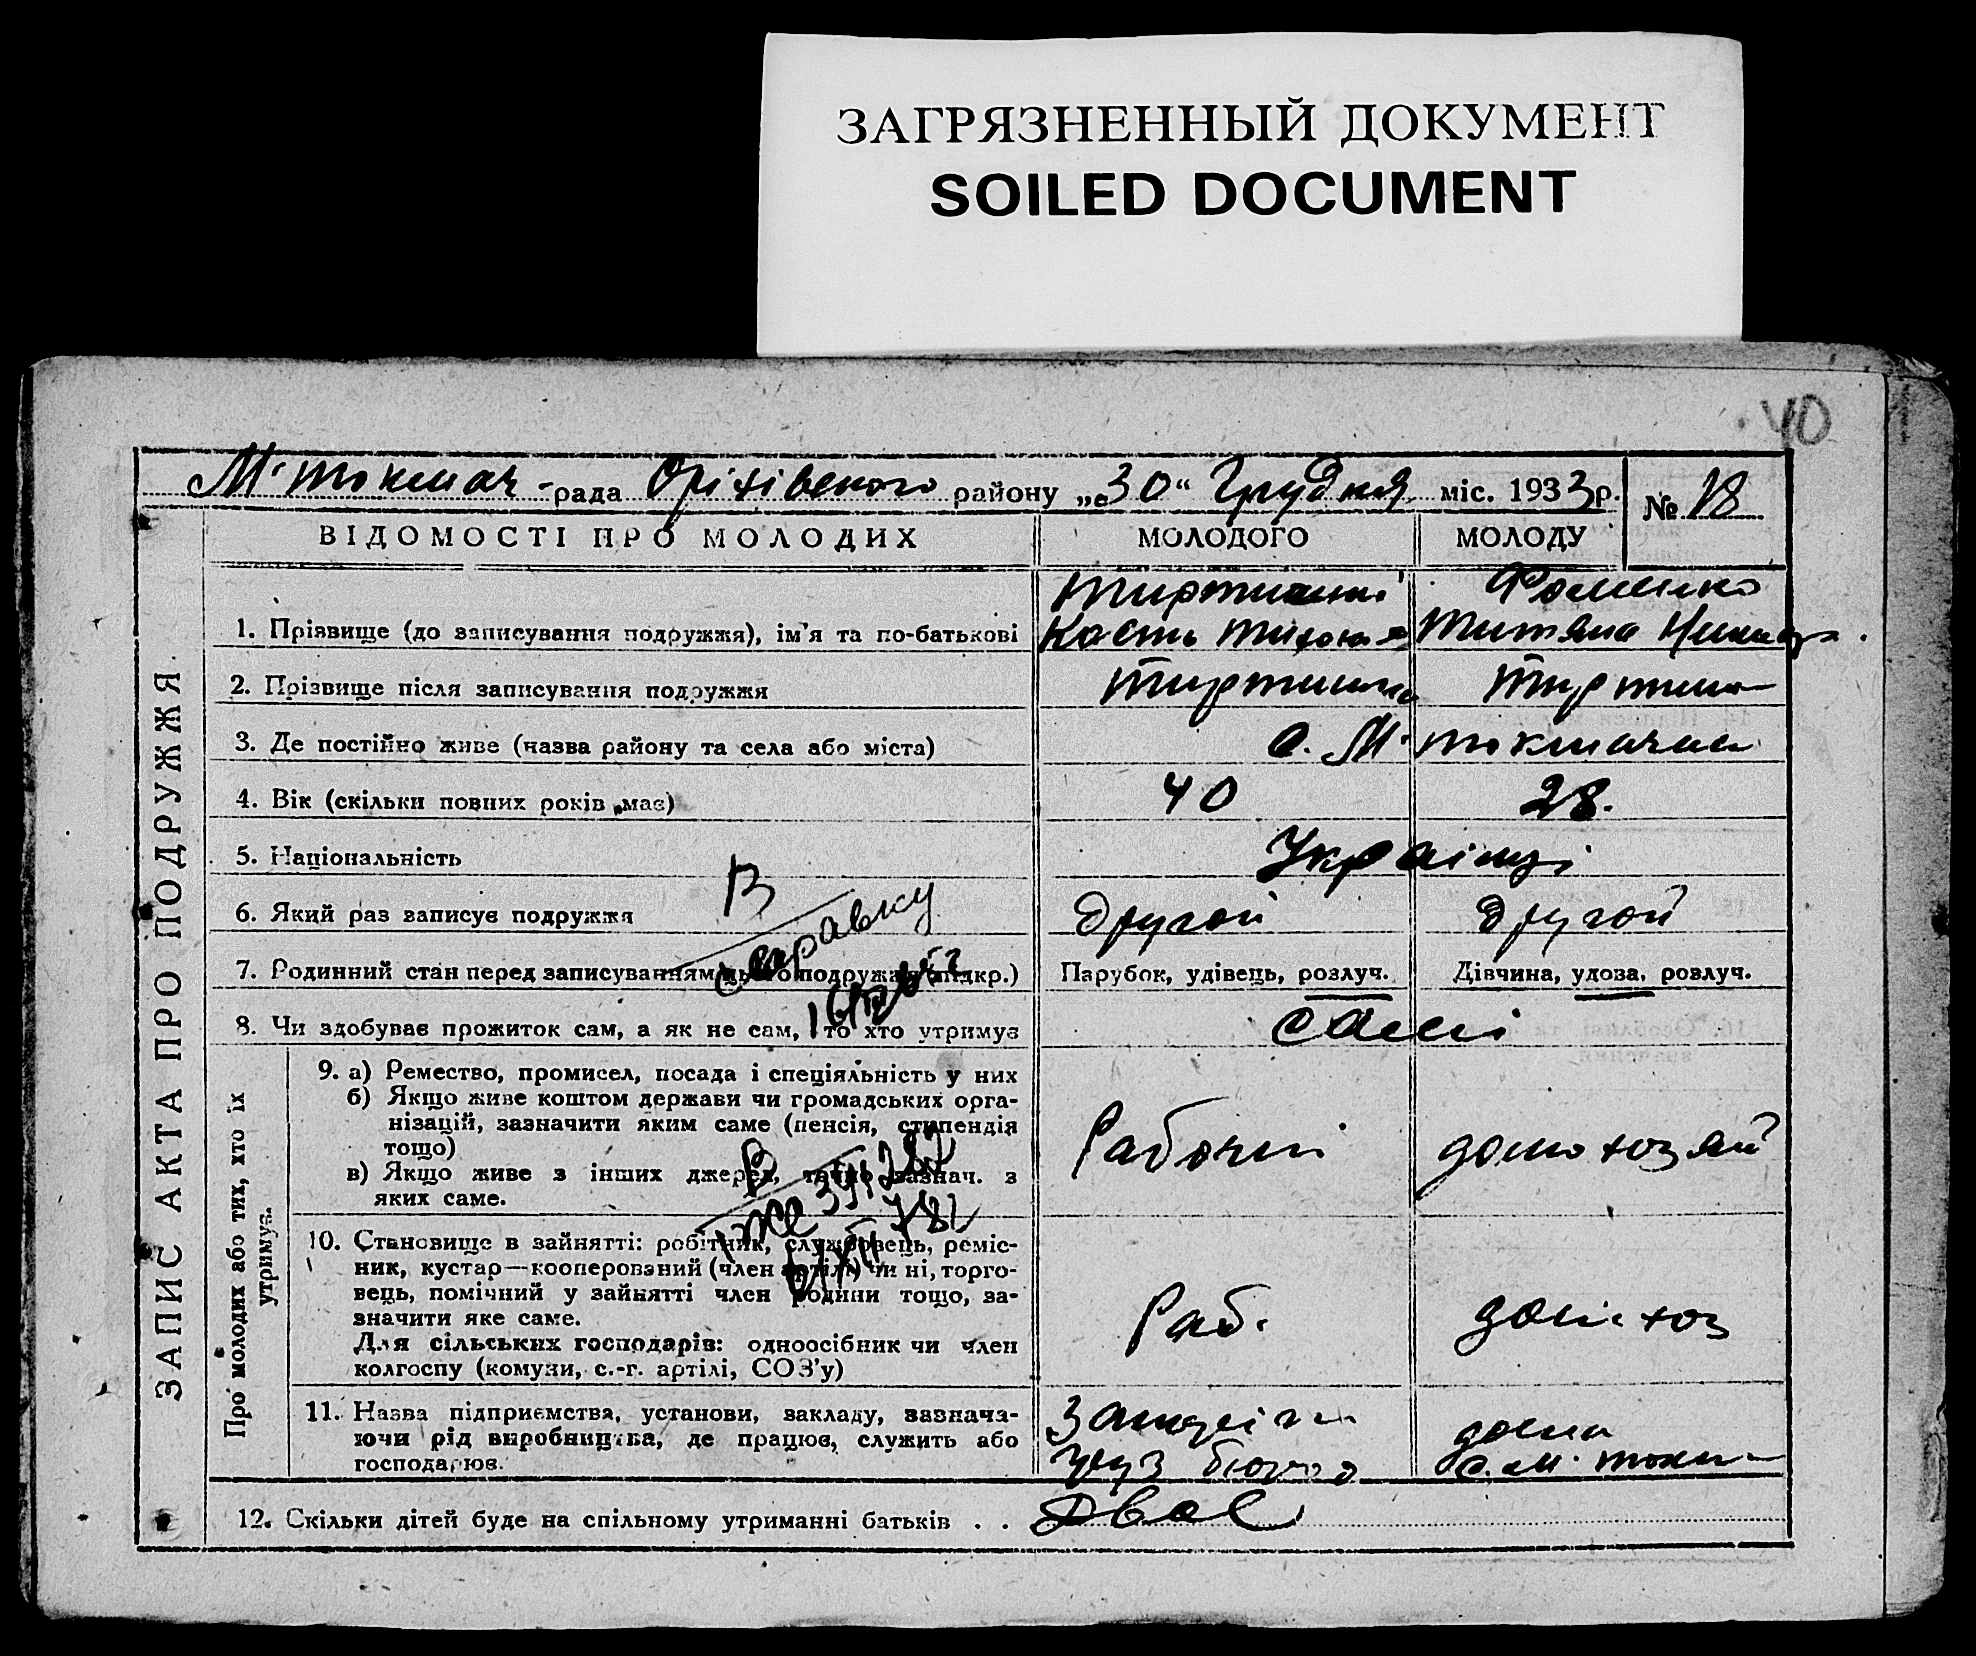 ЗАГРЯЗНЕННЫЙ ДОКУМЕНТ
SOILED DOCUMENT
40
М. токмач -рада Оріхівського району „30“ Грудня міс. 1933р. № 18
ЗАПИС АКТА ПРО ПОДРУЖЖЯ.
ВІДОМОСТІ ПРО МОЛОДИХ МОЛОДОГО МОЛОДУ
Фоменко
1. Прізвище (до записування подружжя), ім’я та по-батькові Кость Титяна
2. Прізвище після записування подружжя
3. Де постійно живе (назва району та села або міста) с. М.
4. Вік (скільки повних років має) 40 28.
5. Національність Українці
6. Який раз записує подружжя другой другой
В
справку
7. Родинний стан перед записуванням цього подружжя (підкр.) Парубок, удівець, розлуч. Дівчина, удова, розлуч.
8. Чи здобуває прожиток сам, а як не сам, то хто утримує самі
Про молодих або тих, хто їх утримує.
9. а) Ремество, промисел, посада і спеціяльність у них
б) Якщо живе коштом держави чи громадських орга-
нізацій, зазначити яким саме (пенсія, стипендія
тощо) Рабочий домохозяй
в) Якщо живе з інших джерел, точно зазнач. з
яких саме.
10. Становище в зайнятті: робітник, службовець, реміс-
ник, кустар—кооперований (член артілі) чи ні, торго-
вець, помічний у зайнятті член родини тощо, за-
значити яке саме. Раб. домохоз
Для сільських господарів: одноосібник чи член
колгоспу (комуни, с.-г. артілі, СОЗ’у)
11. Назва підприємства, установи, закладу, зазнача-
ючи рід виробництва, де працює, служить або дома
господарює. с. М.
12. Скільки дітей буде на спільному утриманні батьків . . Двоє